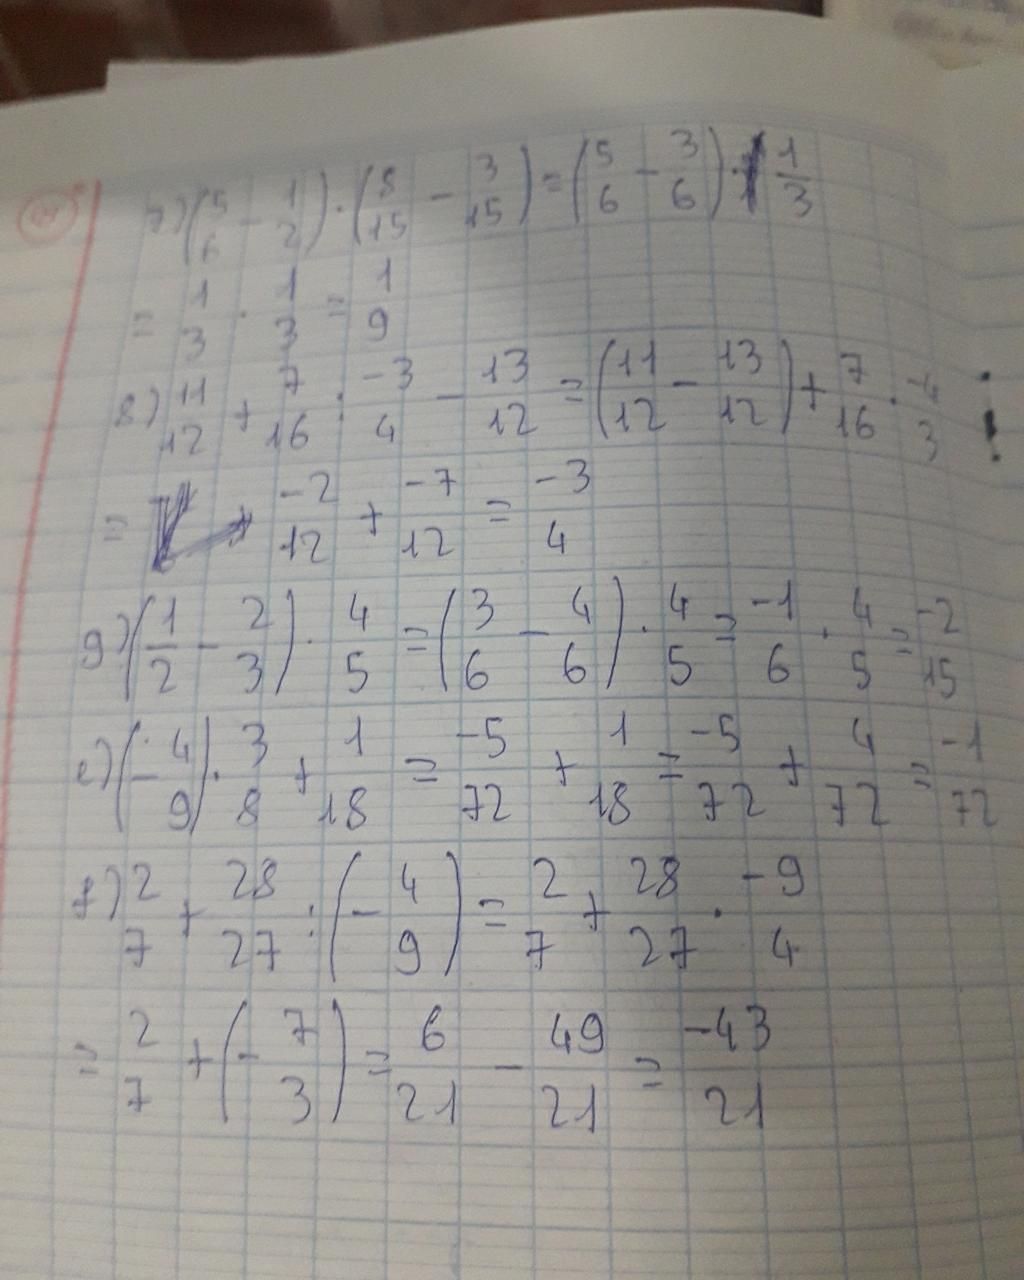 7) (5/6 - 1/2) · (8/15 - 3/15) = (5/6 - 3/6) · 1/3
= 1/3 · 1/3 = 1/9
8) 11/12 + 7/16 : -3/4 - 13/12 = (11/12 - 13/12) + 7/16 · -4/3
= -2/12 + -7/12 = -3/4
g) (1/2 - 2/3) · 4/5 = (3/6 - 4/6) · 4/5 = -1/6 · 4/5 = -2/15
e) (-4/9) · 3/8 + 1/18 = -5/72 + 1/18 = -5/72 + 4/72 = -1/72
f) 2/7 + 28/27 : (-4/9) = 2/7 + 28/27 · -9/4
= 2/7 + (-7/3) = 6/21 - 49/21 = -43/21